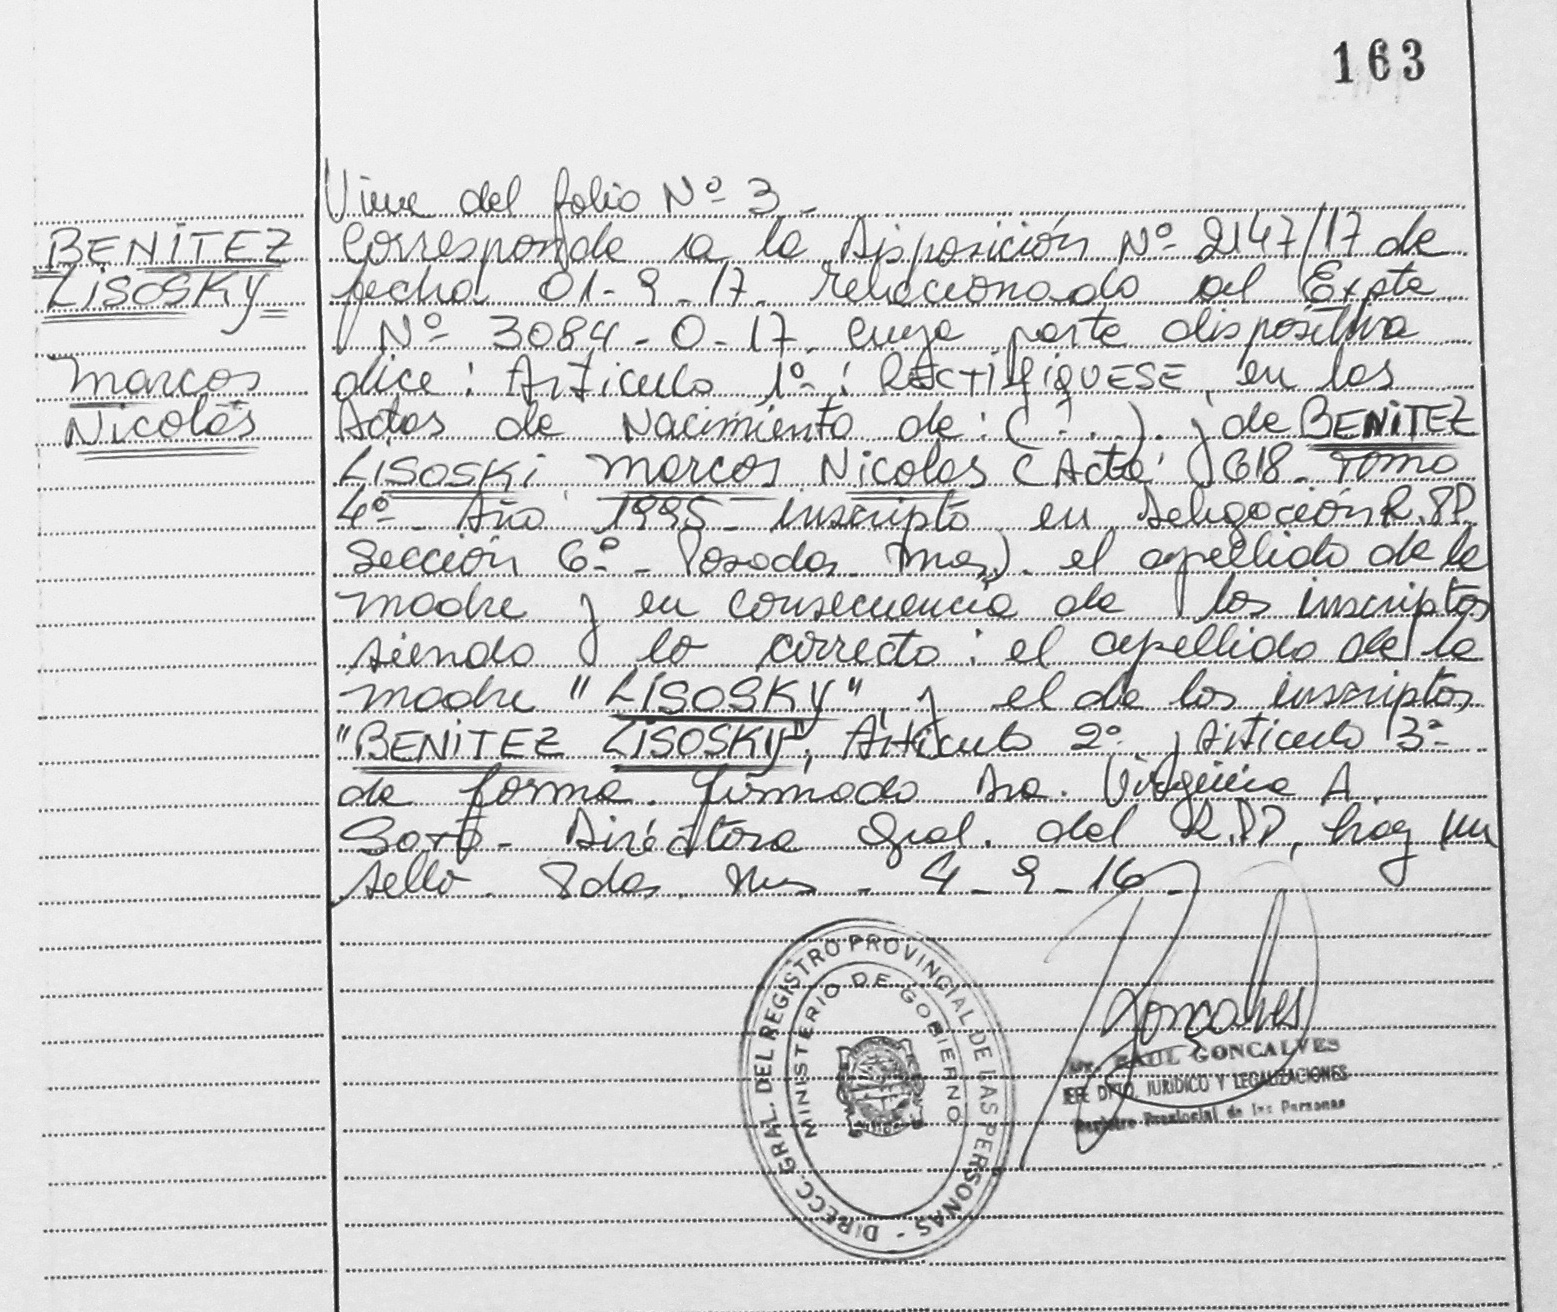 163
Viene del folio Nº 3-
BENITEZ
LISOSKY
Marcos
Nicolás
Corresponde a la Disposición Nº 2147/17 de
fecha 01-9-17 relacionado al Expte
Nº 3084-0-17 cuya parte dispositiva
dice: Artículo 1º: RECTIFIQUESE en las
Actas de Nacimiento de: (...). y de BENITEZ
LISOSKI Marcos Nicolas (Acta: 618 Tomo
4º- Año 1995- inscripto en Delegación R.PP.
Sección 6º- Posadas Mnes). el apellido de la
madre y en consecuencia de los inscriptos
siendo lo correcto: el apellido de la
madre "LISOSKY" y el de los inscriptos
"BENITEZ LISOSKY", Artículo 2º Artículo 3º
de forma. firmado Dra. Virginia A.
Soto- Directora Gral. del R.PP, hay un
sello. Pdas. Mnes - 4-9-16-
DIRECC. GRAL. DEL REGISTRO PROVINCIAL DE LAS PERSONAS -
MINISTERIO DE GOBIERNO
Goncalves
Dr. RAUL GONCALVES
JEFE DPTO. JURIDICO Y LEGALIZACIONES
Registro Provincial de las Personas